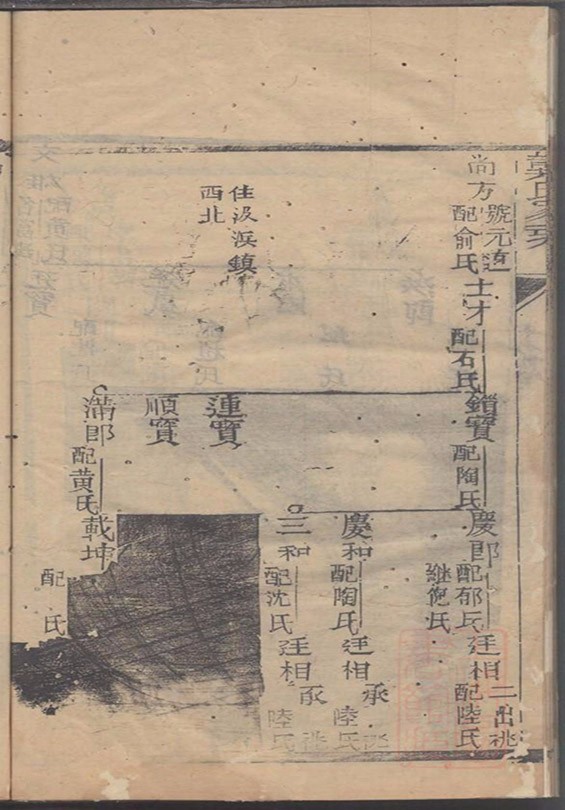 尚方
號元道
配俞氏
士才
配石氏
鎖寶
配陶氏
慶郎
配郁氏
継倪氏
廷相
二出祧
配陸氏
慶和
配陶氏
廷相
承
陸氏
三和
配沈氏
廷相
承祧
陸氏
住汲浜鎮
西北
連寶
順寶
滿郎
配黄氏
載坤
配 氏